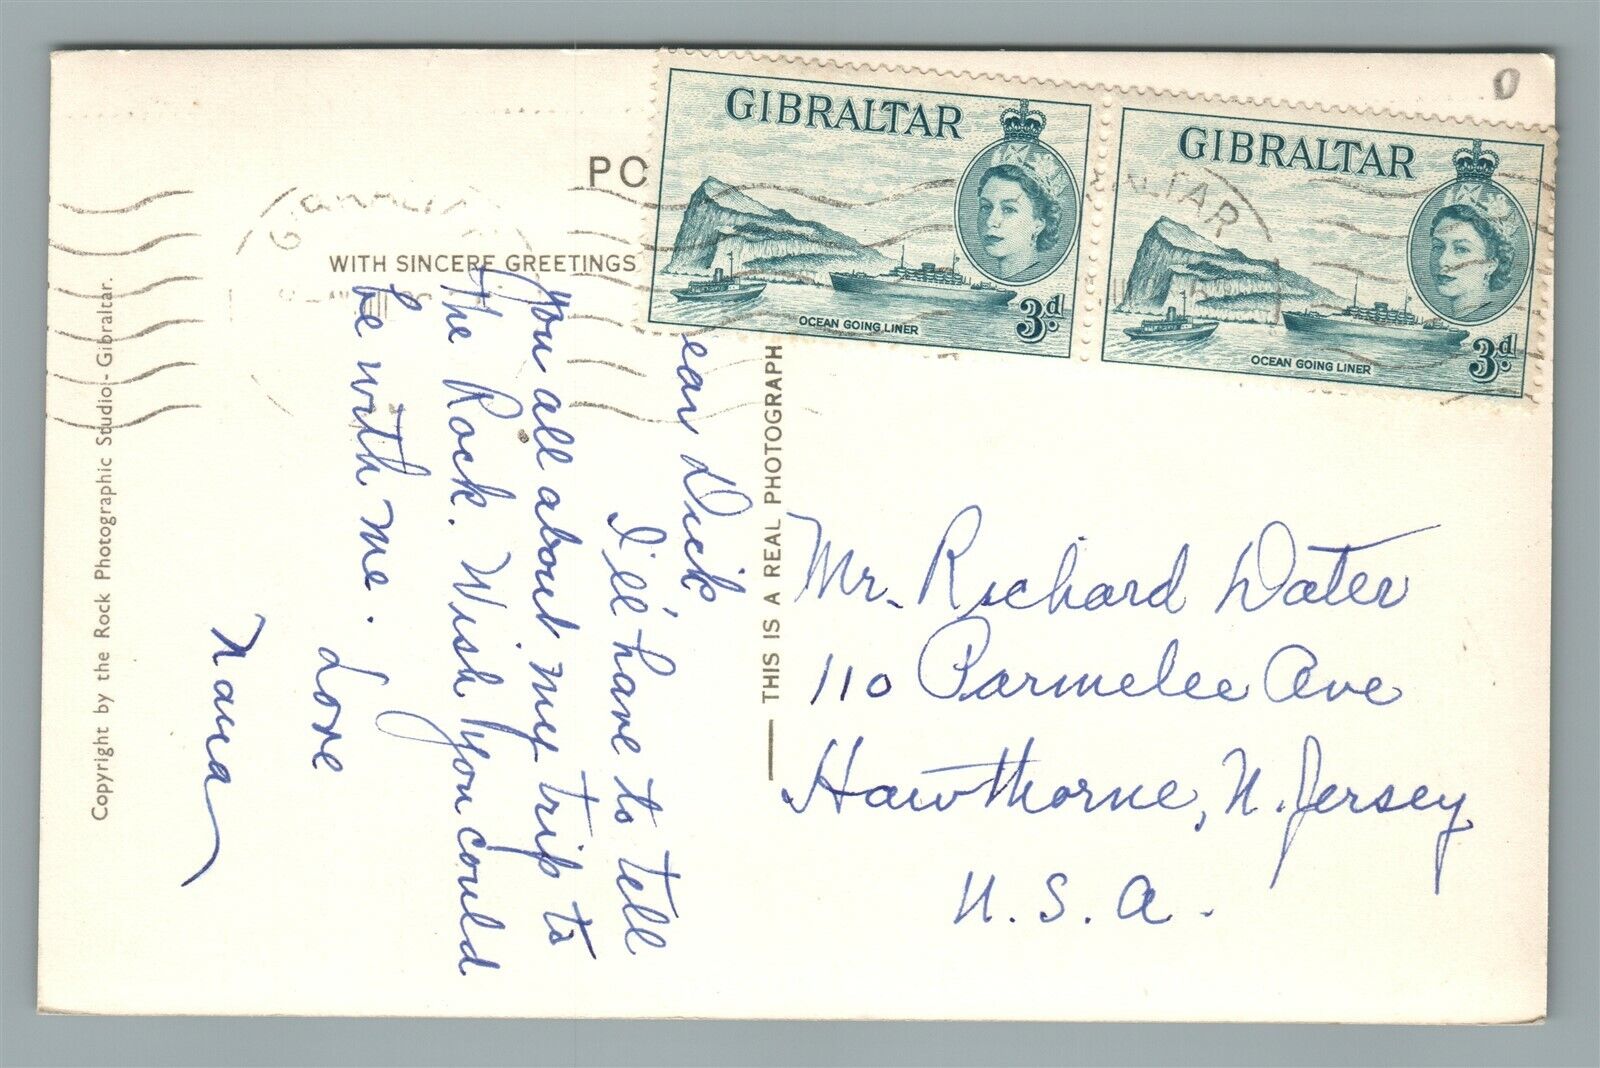 PO
WITH SINCERE GREETINGS
GIBRALTAR
OCEAN GOING LINER
3d
GIBRALTAR
OCEAN GOING LINER
3d
GIBRALTAR
ALTAR
0
Copyright by the Rock Photographic Studio - Gibraltar.
THIS IS A REAL PHOTOGRAPH
ear Dick
I'll have to tell
you all about my trip to
the Rock. Wish you could
be with me.
Love
Nana
Mr. Richard Dater
110 Parmelee Ave
Hawthorne, N. Jersey
U. S. A.